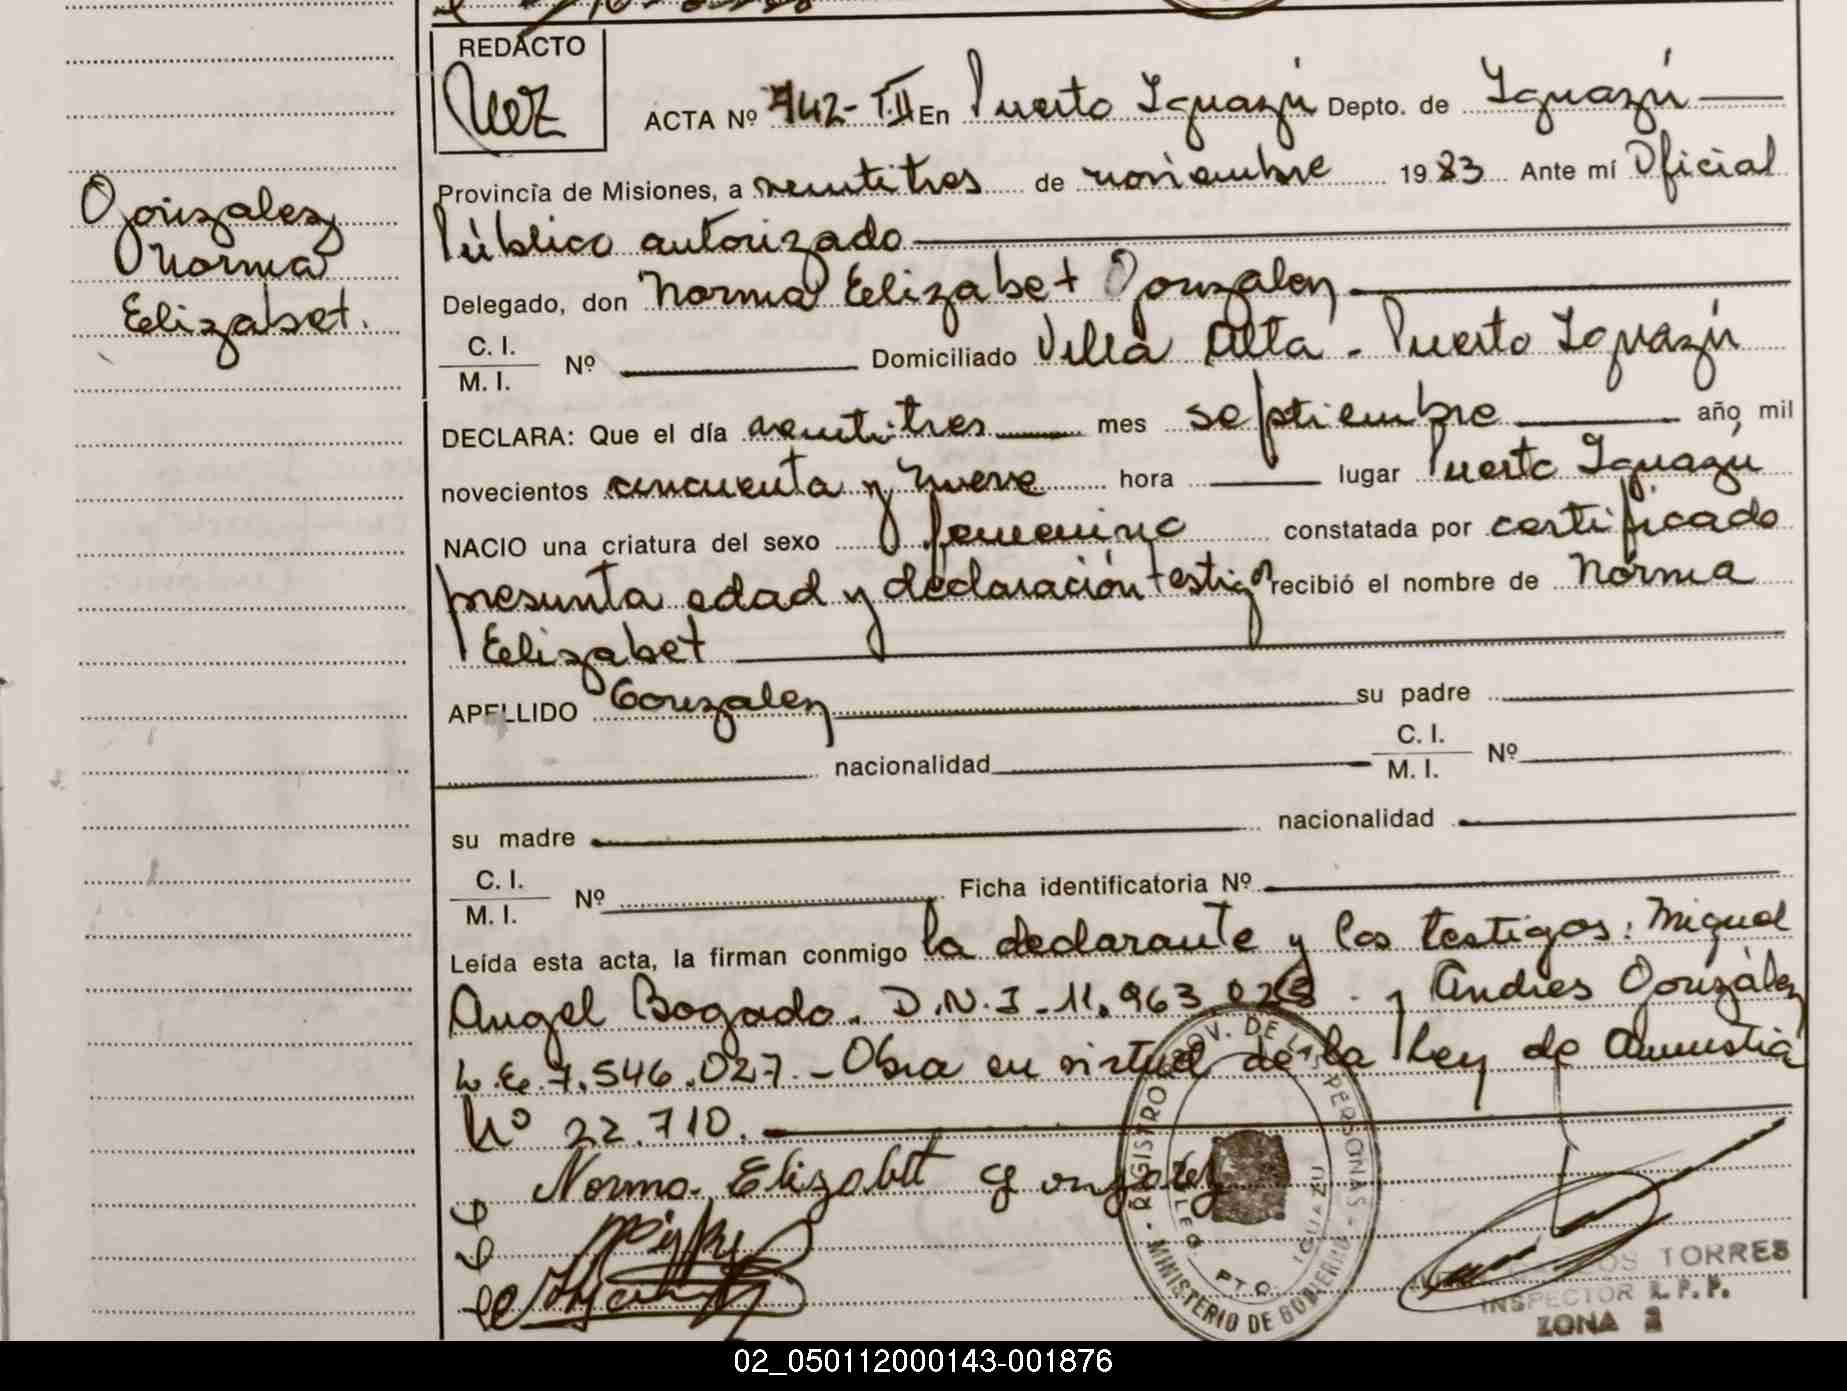 REDACTO
ACTA Nº 742-T.II En Puerto Iguazú Depto. de Iguazú
Gonzalez
Norma
Elizabet.
Provincia de Misiones, a veintitres de noviembre 1983 Ante mí Oficial
Público autorizado
Delegado, don Norma Elizabet Gonzalez
C. I.
M. I.
Nº Domiciliado Villa Alta - Puerto Iguazú
DECLARA: Que el día veintitres mes septiembre año mil
novecientos cincuenta y nueve hora lugar Puerto Iguazú
NACIO una criatura del sexo femenino constatada por certificado
presunta edad y declaración testigo recibió el nombre de Norma
Elizabet
APELLIDO Gonzalez su padre
nacionalidad C. I.
M. I. Nº
su madre nacionalidad
C. I.
M. I.
Nº Ficha identificatoria Nº
Leída esta acta, la firman conmigo la declarante y los testigos: Miguel
Angel Bogado. D.N.I. 11.963.028 - y Andres González
L.E. 7.546.027.- Obra en virtud de la Ley de Amnistia
Nº 22.710.
Norma Elizabet Gonzalez
REGISTRO PROV. DE LAS PERSONAS
MINISTERIO DE GOBIERNO
PTO. IGUAZU
TORRES
INSPECTOR R.P.P.
ZONA 2
02_050112000143-001876